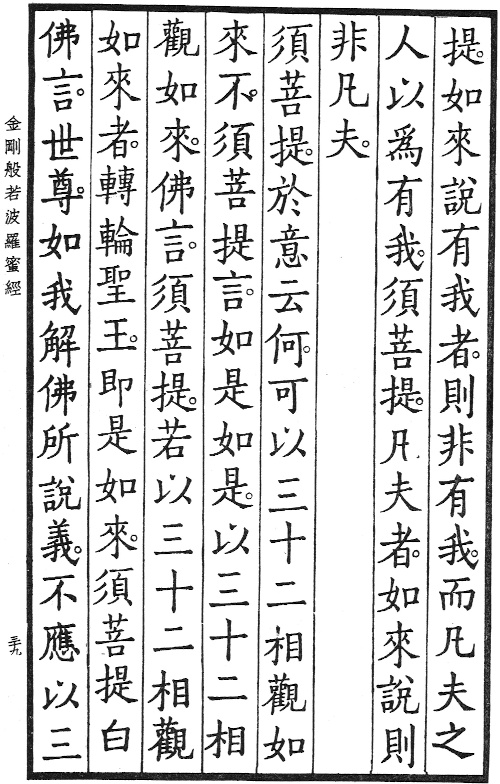 提。如來說有我者。則非有我。而凡夫之
人以為有我。須菩提。凡夫者。如來說則
非凡夫。
須菩提。於意云何。可以三十二相觀如
來不。須菩提言。如是如是。以三十二相
觀如來。佛言。須菩提。若以三十二相觀
如來者。轉輪聖王。即是如來。須菩提白
佛言。世尊。如我解佛所說義。不應以三
金剛般若波羅蜜經
三九